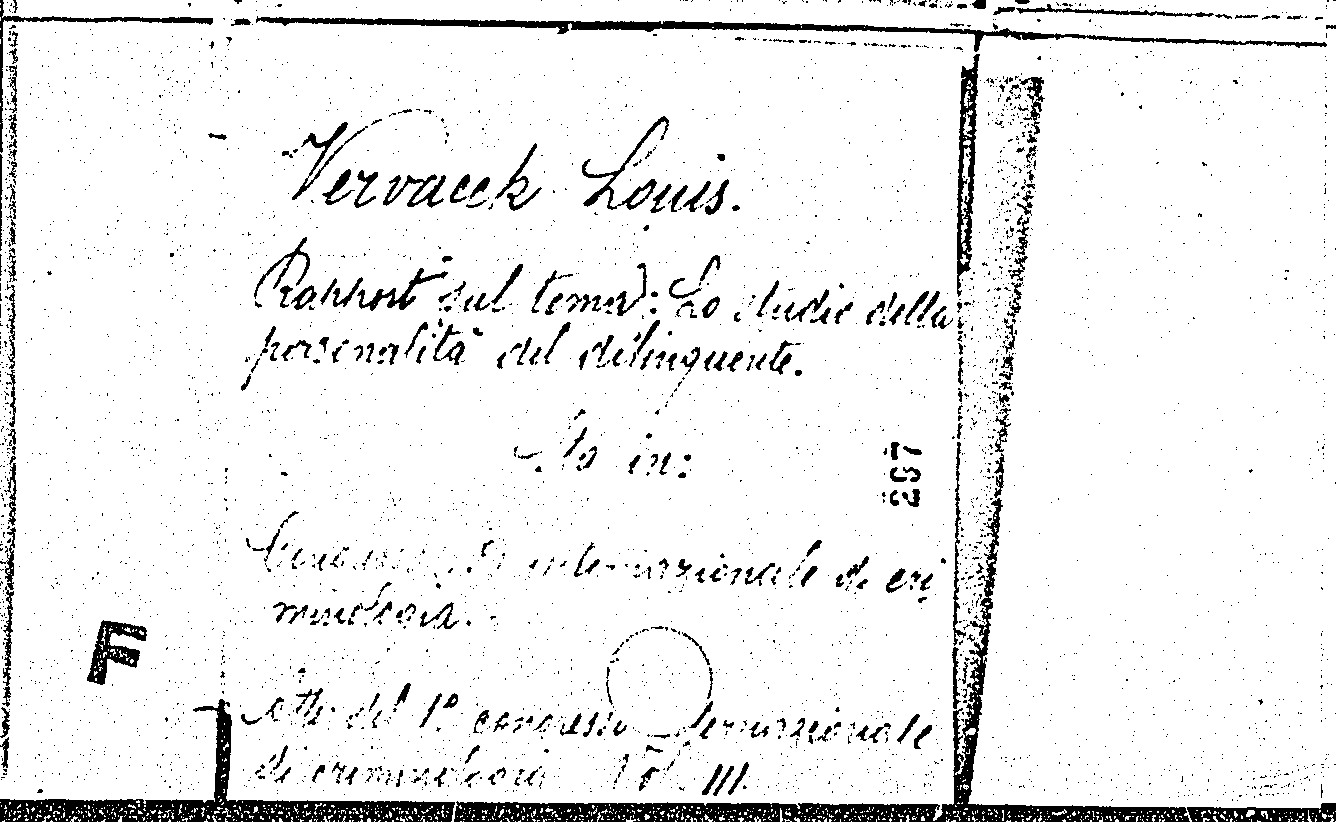 Vervaeck Louis.
Rapport sul tema): Lo studio della
personalità del delinquente.
Sta in:
internazionale di cri
minologia.
Atti del 1º congresso internazionale
di criminologia Vol. III.
267
F